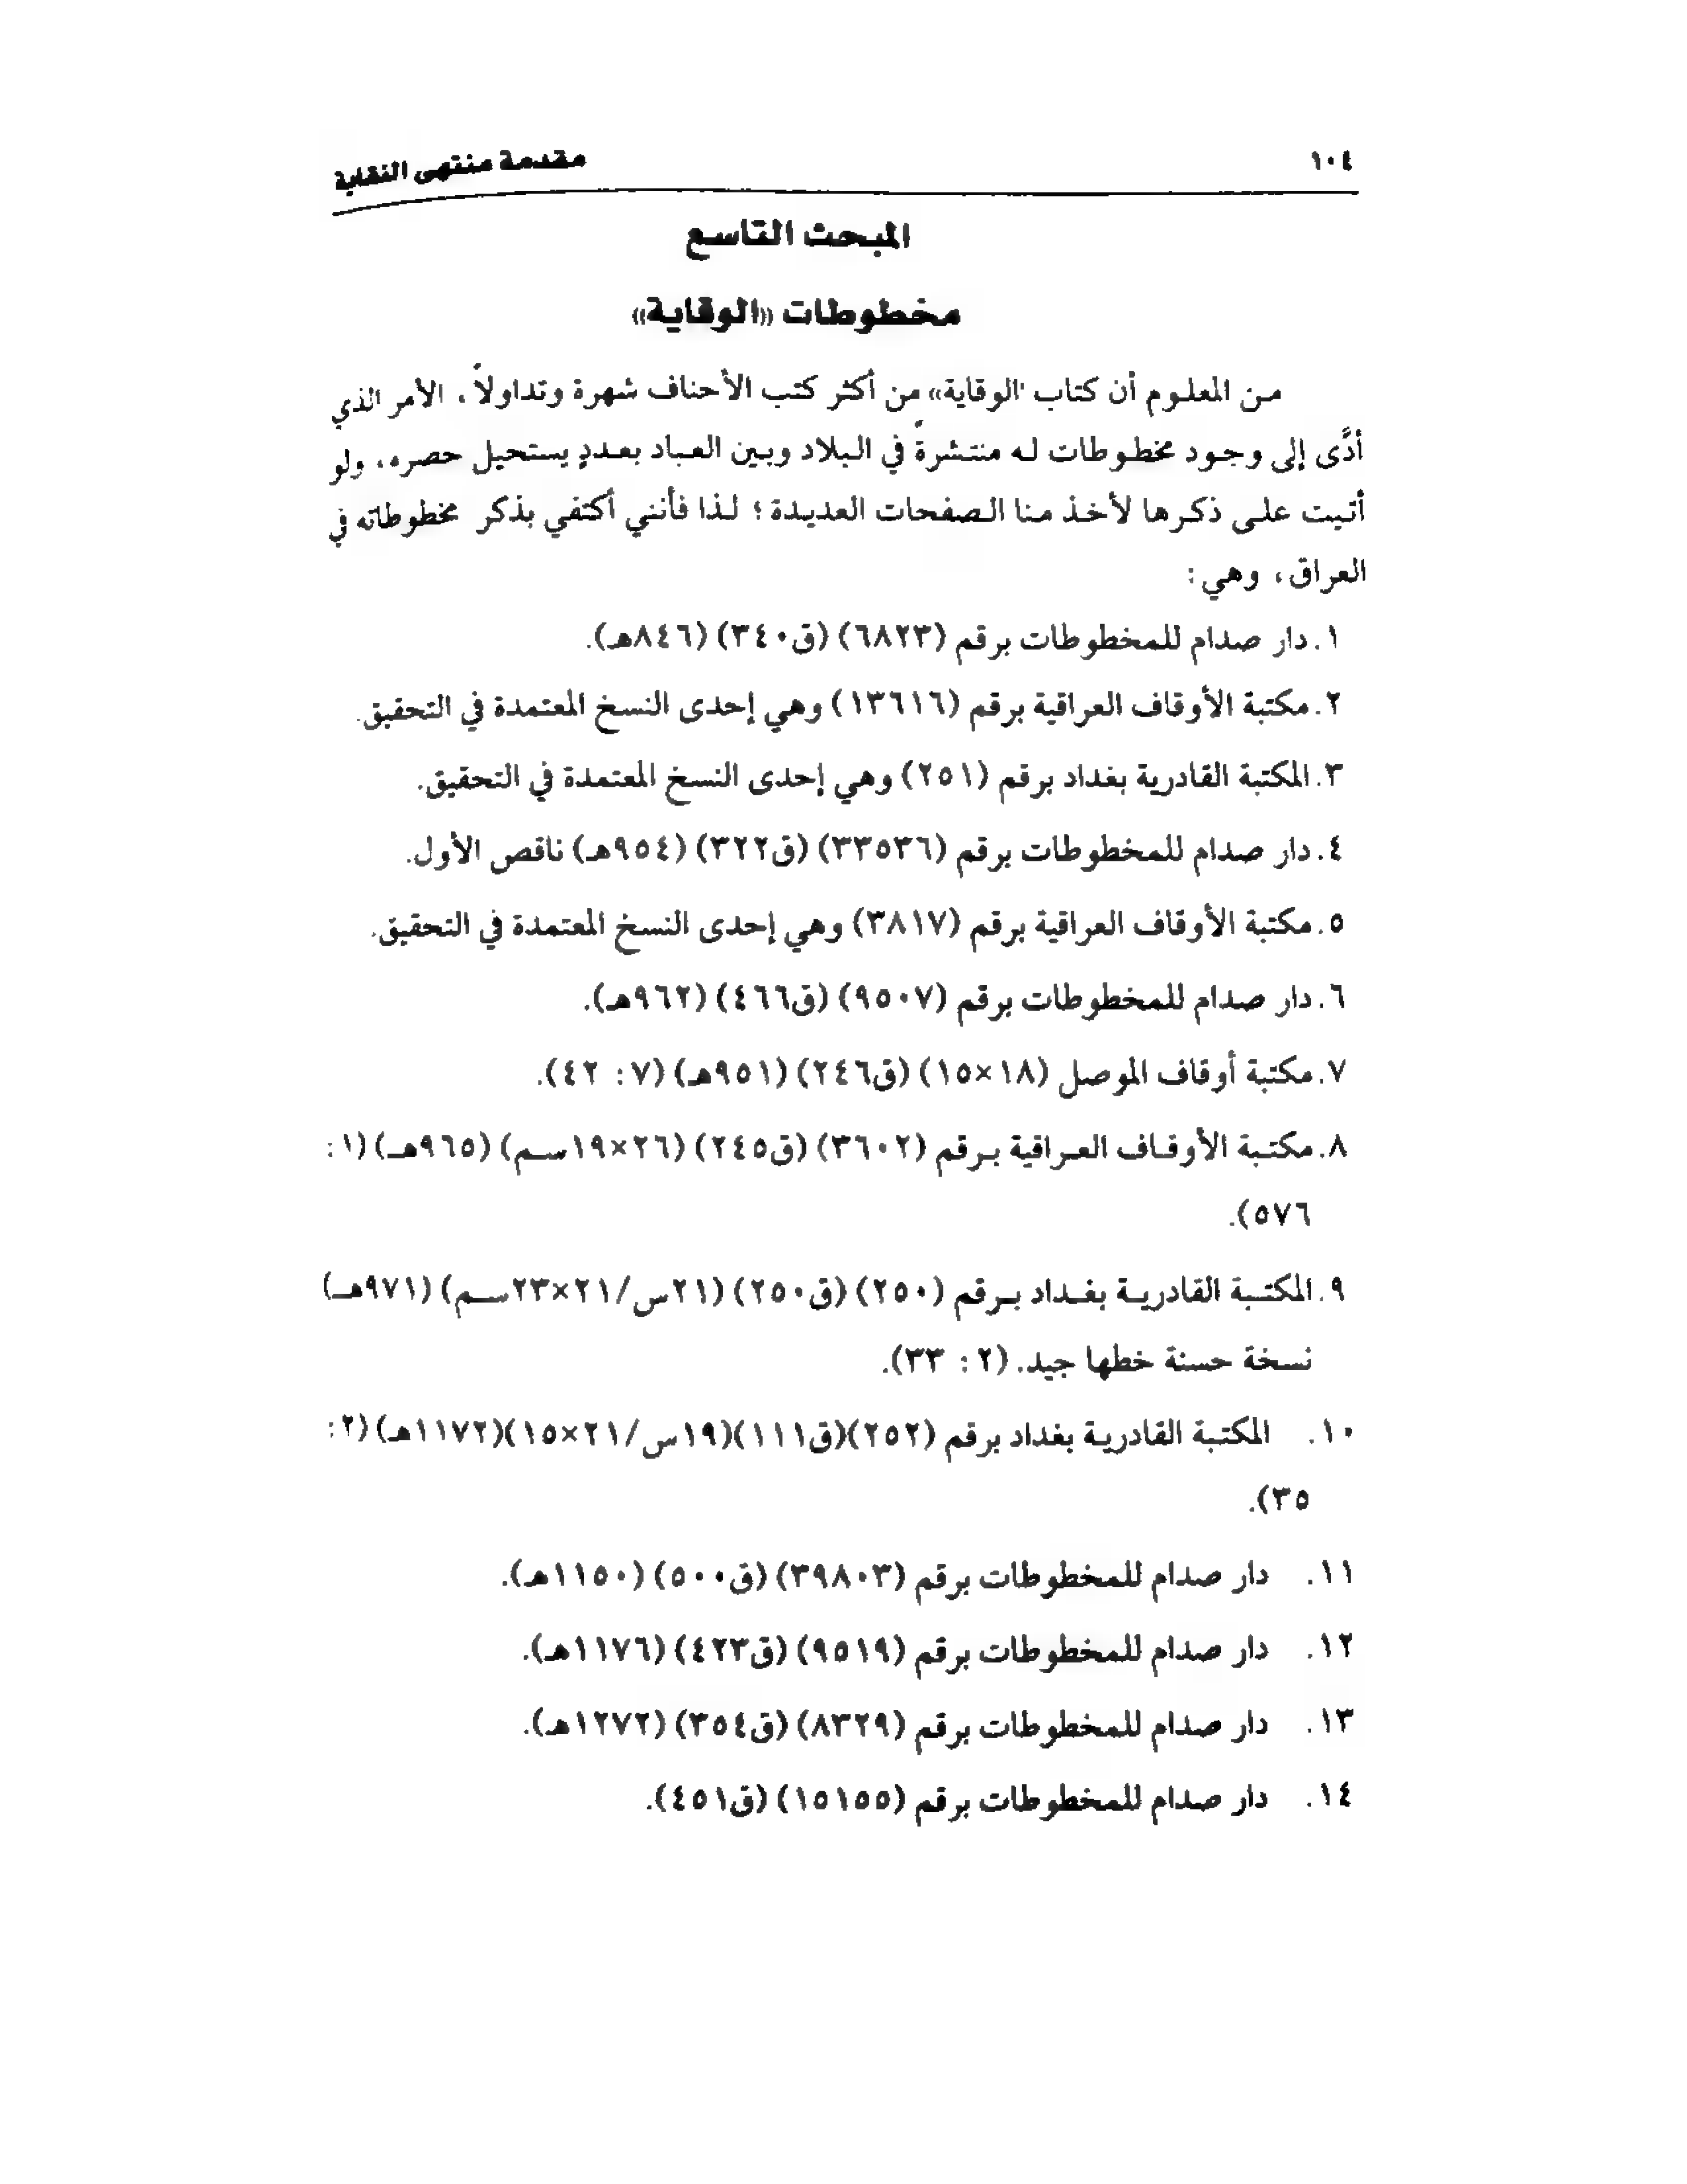 ١٠٤ مقدمة منتهى النقاية
المبحث التاسع
مخطوطات «الوقاية»
من المعلوم أن كتاب «الوقاية» من أكثر كتب الأحناف شهرة وتداولاً، الأمر الذي
أدَّى إلى وجود مخطوطات له منتشرة في البلاد وبين العباد بعددٍ يستحيل حصره، ولو
أتيت على ذكرها لأخذ منا الصفحات العديدة؛ لذا فأنني أكتفي بذكر مخطوطاته في
العراق، وهي:
١. دار صدام للمخطوطات برقم (٦٨٢٣) (ق٣٤٠) (٨٤٦هـ).
٢. مكتبة الأوقاف العراقية برقم (١٣٦١٦) وهي إحدى النسخ المعتمدة في التحقيق.
٣. المكتبة القادرية بغداد برقم (٢٥١) وهي إحدى النسخ المعتمدة في التحقيق.
٤. دار صدام للمخطوطات برقم (٣٣٥٣٦) (ق٣٢٢) (٩٥٤هـ) ناقص الأول.
٥. مكتبة الأوقاف العراقية برقم (٣٨١٧) وهي إحدى النسخ المعتمدة في التحقيق.
٦. دار صدام للمخطوطات برقم (٩٥٠٧) (ق٤٦٦) (٩٦٢هـ).
٧. مكتبة أوقاف الموصل (١٨×١٥) (ق٢٤٦) (٩٥١هـ) (٧: ٤٢).
٨. مكتبة الأوقاف العراقية برقم (٣٦٠٢) (ق٢٤٥) (٢٦×١٩سم) (٩٦٥هـ) (١:
٥٧٦).
٩. المكتبة القادرية بغداد برقم (٢٥٠) (ق٢٥٠) (٢١س/٢١×٢٣سم) (٩٧١هـ)
نسخة حسنة خطها جيد. (٢: ٣٣).
١٠. المكتبة القادرية بغداد برقم (٢٥٢)(ق١١١)(١٩س/٢١×١٥)(١١٧٢هـ)(٢:
٣٥).
١١. دار صدام للمخطوطات برقم (٣٩٨٠٣) (ق٥٠٠) (١١٥٠هـ).
١٢. دار صدام للمخطوطات برقم (٩٥١٩) (ق٤٢٣) (١١٧٦هـ).
١٣. دار صدام للمخطوطات برقم (٨٣٢٩) (ق٣٥٤) (١٢٧٢هـ).
١٤. دار صدام للمخطوطات برقم (١٥١٥٥) (ق٤٥١).